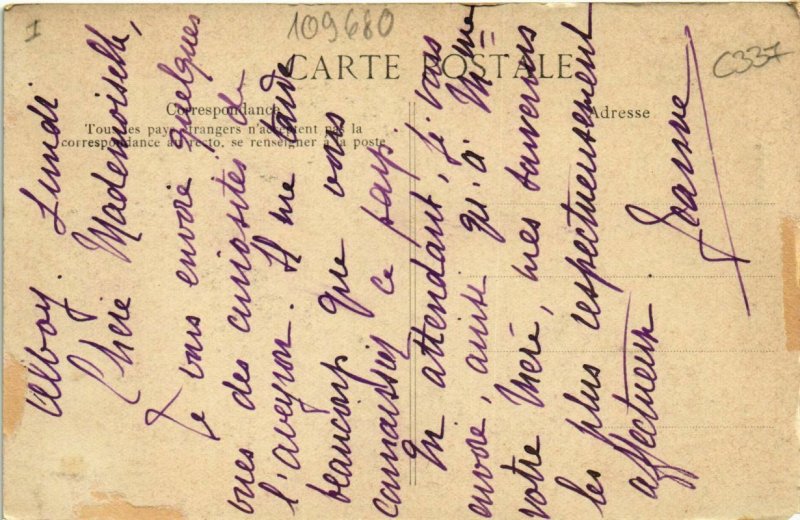 I
109680
C337
CARTE POSTALE
Correspondance
Tous les pays étrangers n'acceptent pas la
correspondance au recto, se renseigner à la poste
Adresse
Alboy. Lundi
Chère Mademoiselle,
Je vous envoie quelques
vues des curiosités de
l'aveyron. Il me tarde
beaucoup que vous
connaissiez ce pays.
En attendant, je vous
envoie, ainsi qu'à Mme
votre mère, mes souvenirs
les plus respectueusement
affectueux.
Jeanne